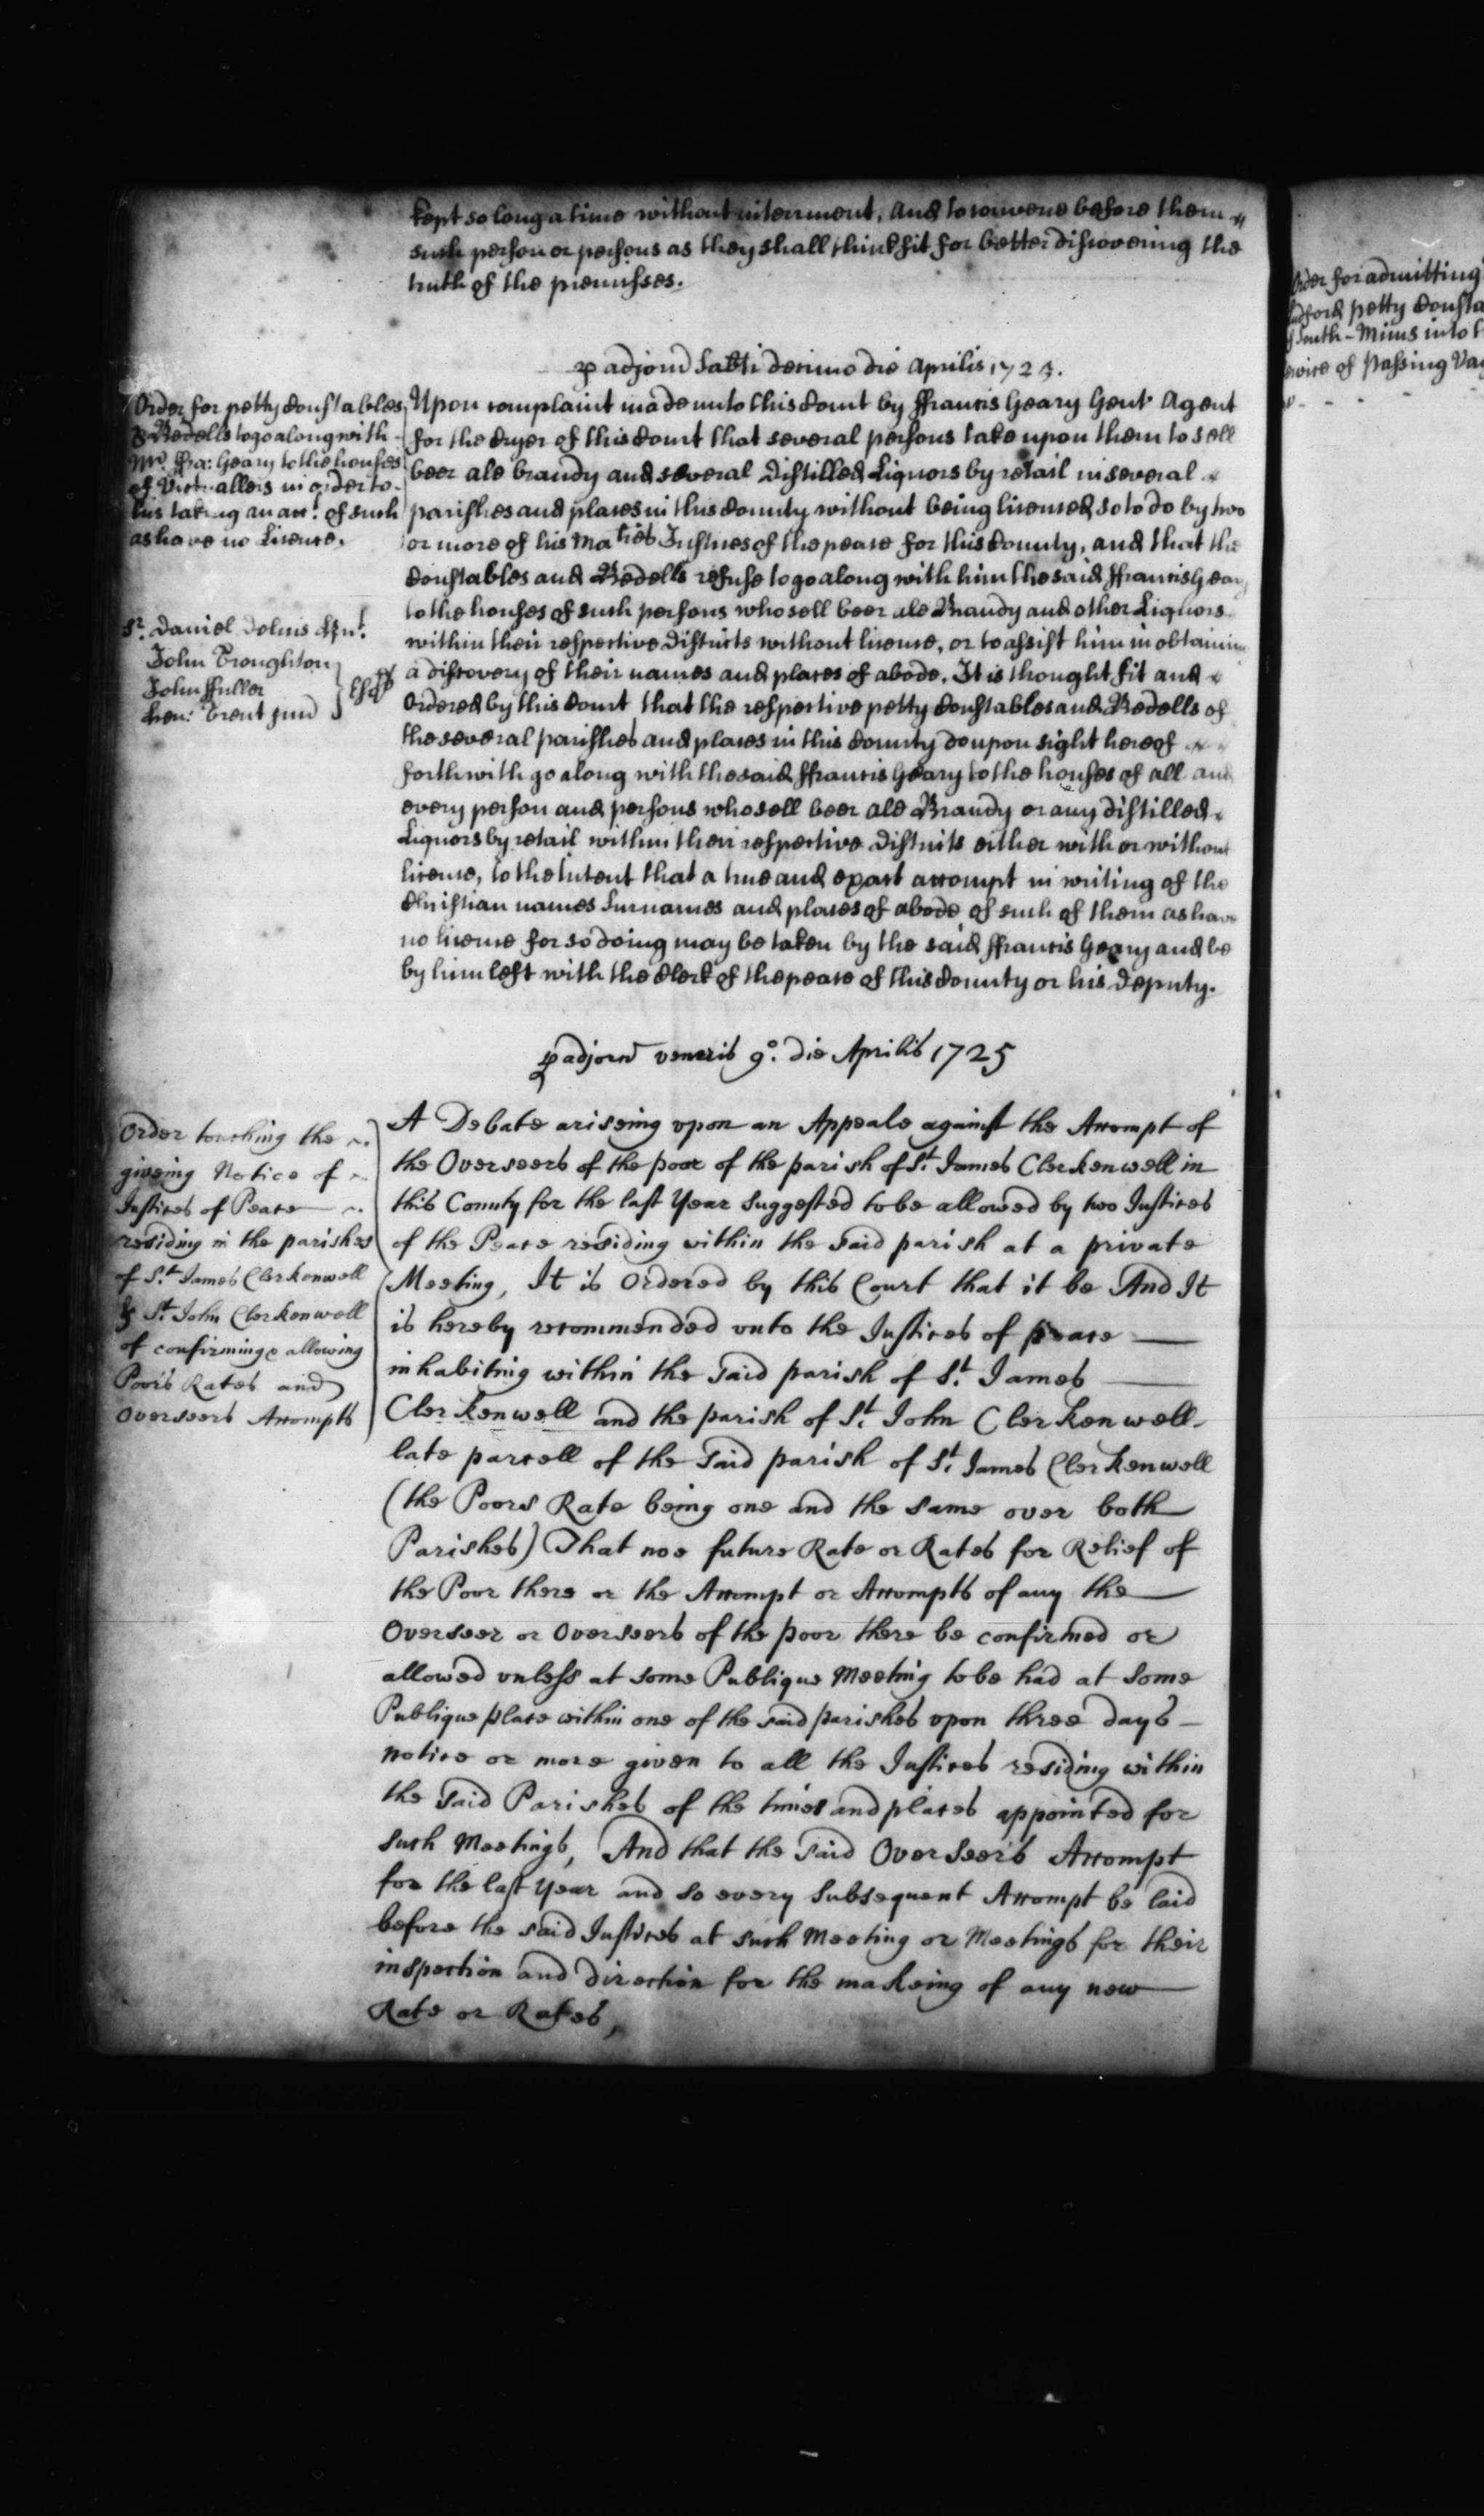 kept so long a time without interrment, and to convene before them
such person or persons as they shall think fit for better discovering the
truth of the premisses.
p adjorn Sabti decimo die Aprilis 1725.
Order for petty Constables
& Bedells to go along with
Mr. ffra: Geary to the houses
of Victuallers in order to
his taking an acct. of such
as have no Licence.
Sr. Daniel Dolins Knt.
John Troughton
John ffuller
Hen: Trent jund
Esqrs
Upon complaint made unto this Court by ffrancis Geary Gent Agent
for the Cryer of this Court that several persons take upon them to sell
beer ale brandy and several distilled Liquors by retail in several
parishes and places in this County without being licenced so to do by two
or more of his Maties Justices of the peace for this County, and that the
Constables and Bedells refuse to go along with him the said ffrancis Geary
to the houses of such persons who sell beer ale Brandy and other Liquors
within their respective Districts without licence, or to assist him in obtaining
a discovery of their names and places of abode. It is thought fit and
Ordered by this Court that the respective petty Constables and Bedells of
the several parishes and places in this County do upon sight hereof
forthwith go along with the said ffrancis Geary to the houses of all and
every person and persons who sell beer ale Brandy or any distilled
Liquors by retail within their respective Districts either with or without
licence, to the Intent that a true and exact accompt in writing of the
Christian names Surnames and places of abode of such of them as have
no licence for so doing may be taken by the said ffrancis Geary and be
by him left with the Clerk of the peace of this County or his Deputy.
p adjornd veneris 9o. die Aprilis 1725
Order touching the
giveing Notice of
Justices of Peace
residing in the parishes
of St. James Clerkenwell
& St. John Clerkenwell
of confirming & allowing
Poors Rates and
Overseers Accompts
A Debate ariseing upon an Appeale against the Accompt of
the Overseers of the poor of the parish of St. James Clerkenwell in
this County for the last Year Suggested to be allowed by two Justices
of the Peace residing within the said parish at a private
Meeting, It is Ordered by this Court that it be And It
is hereby recommended unto the Justices of peace
inhabiting within the said parish of St. James
Clerkenwell and the parish of St. John Clerkenwell
late parcell of the said parish of St. James Clerkenwell
(the Poors Rate being one and the same over both
Parishes) That noe future Rate or Rates for Relief of
the Poor there or the Accompt or Accompts of any the
Overseer or Overseers of the poor there be confirmed or
allowed unless at some Publique Meeting to be had at some
Publique place within one of the said parishes upon three days
notice or more given to all the Justices residing within
the said Parishes of the times and places appointed for
such Meetings, And that the said Overseers Accompt
for the last Year and so every Subsequent Accompt be laid
before the said Justices at such Meeting or Meetings for their
inspection and direction for the makeing of any new
Rate or Rates,
Order for admitting
petty Consta
South-Mims into
of passing Va